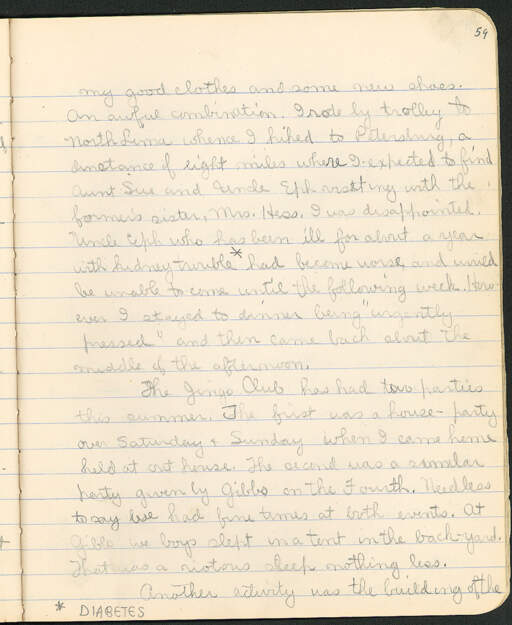 59
my good clothes and some new shoes.
An awful combination. I rode by trolley to
North Lima whence I hiked to Petersburg, a
distance of eight miles where I expected to find
Aunt Sue and Uncle Eph visiting with the
former's sister, Mrs. Hess. I was disappointed.
Uncle Eph who has been ill for about a year
with kidney trouble * had become worse and would
be unable to come until the following week. How-
ever I stayed to dinner being "urgently
pressed" and then came back about the
middle of the afternoon.
The Jingo Club has had two parties
this summer. The first was a house-party
over Saturday & Sunday when I came home
held at our house. The second was a similar
party given by Gibbs on the Fourth. Needless
to say we had fine times at both events. At
Gibbs we boys slept in a tent in the back-yard.
That was a riotous sleep nothing less.
Another activity was the building of the
* DIABETES